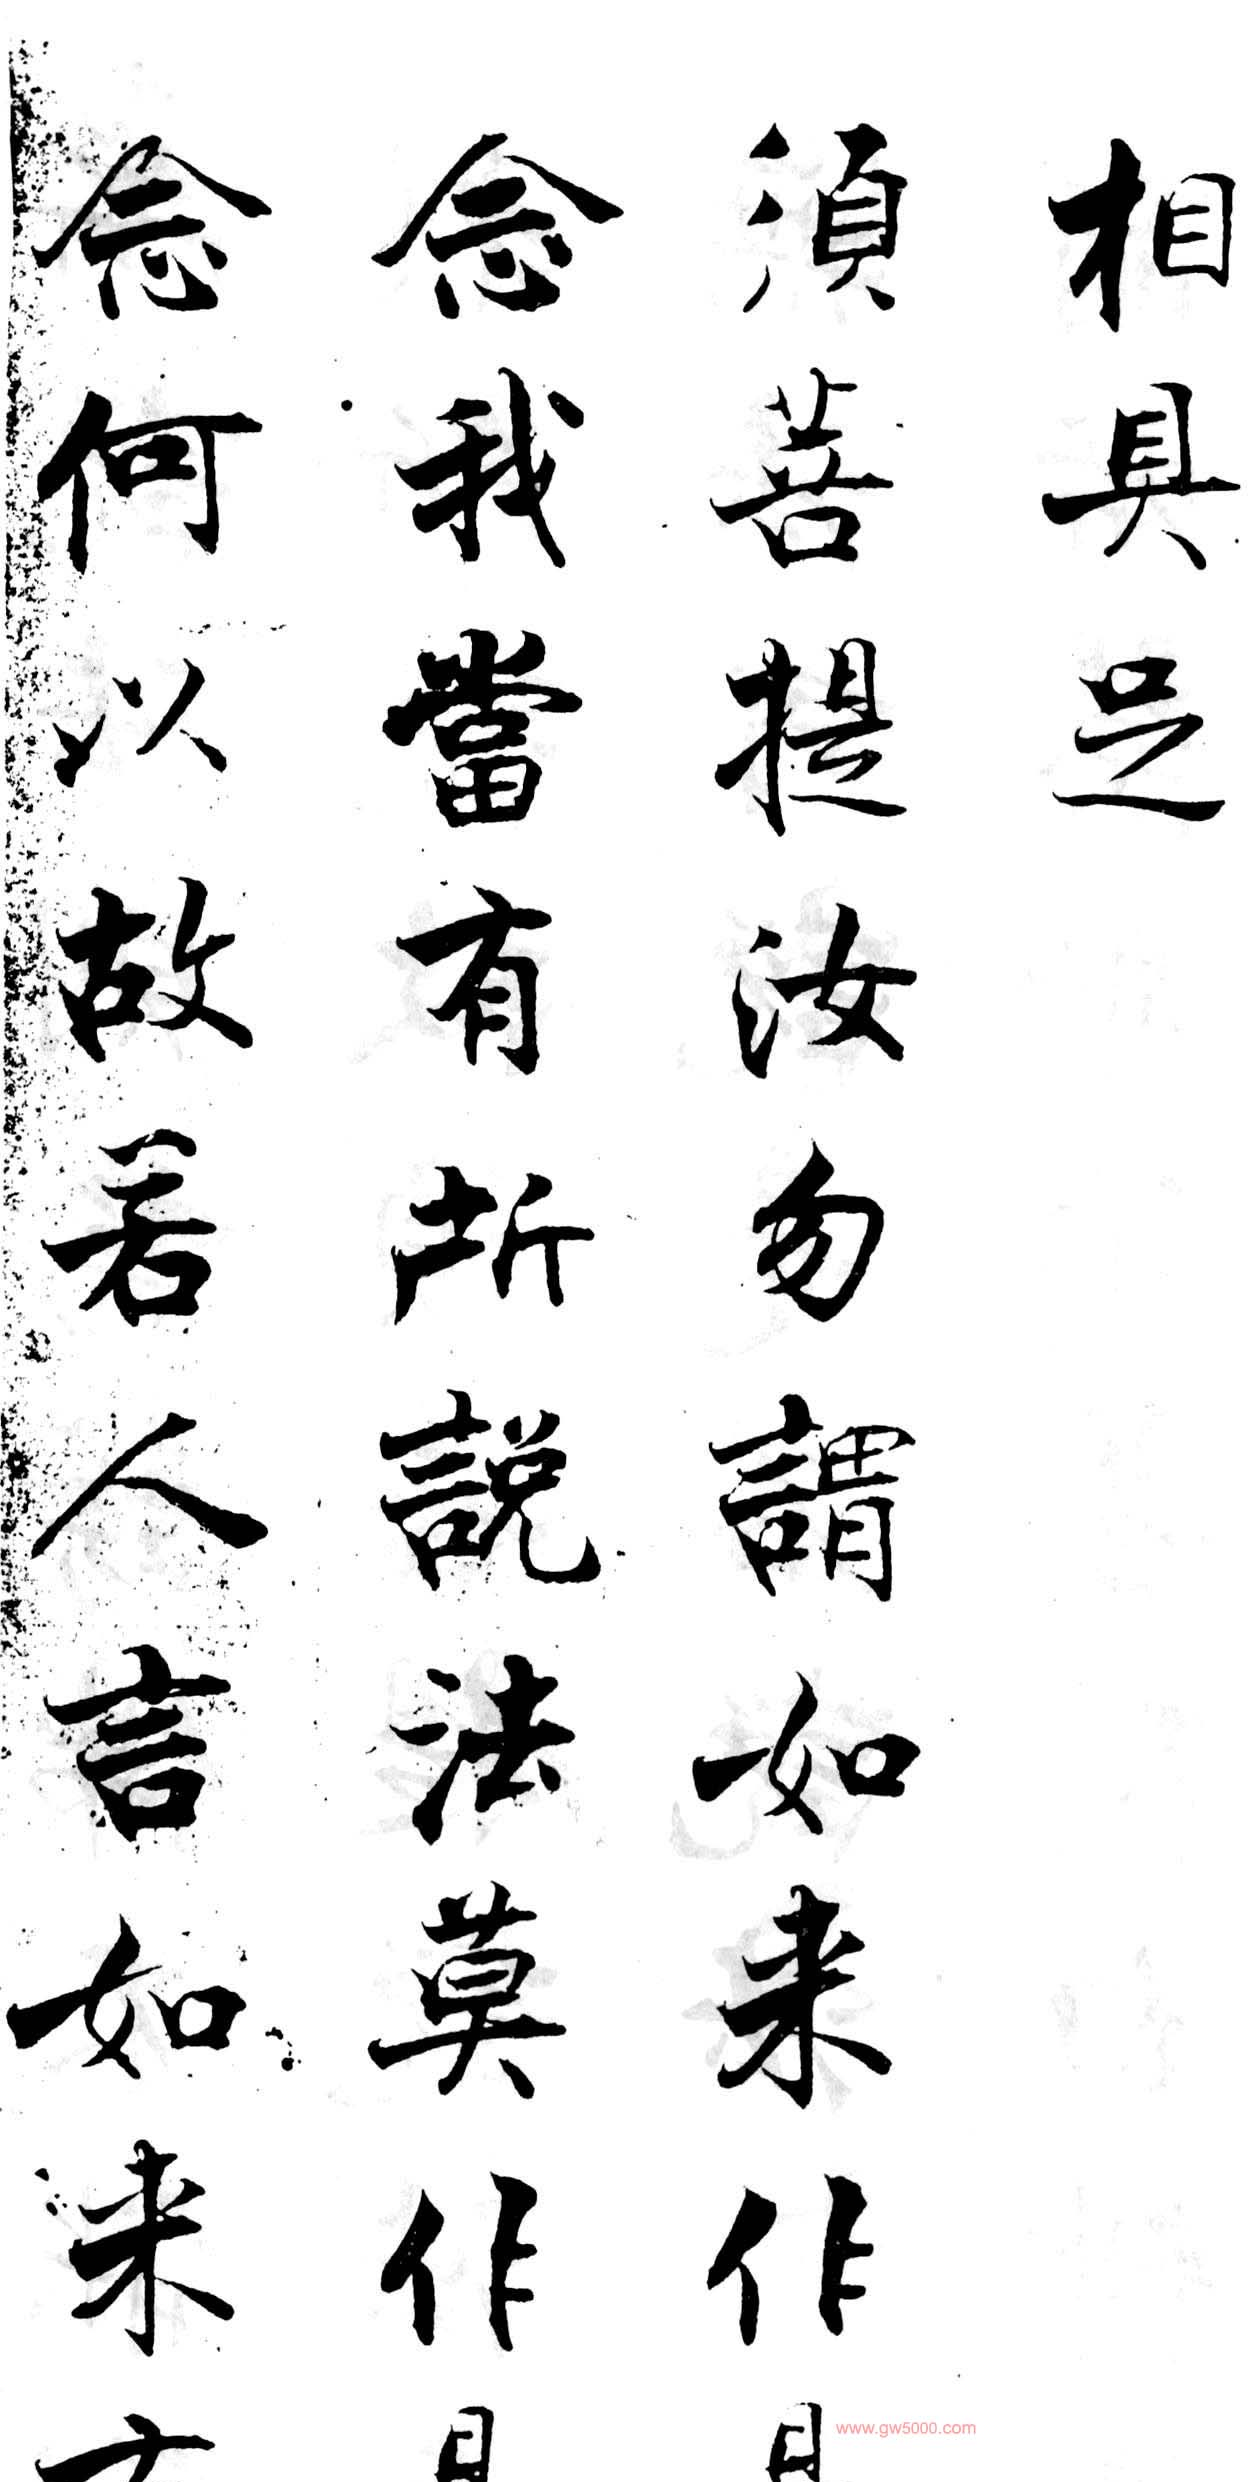 相具足
須菩提汝勿謂如来作
念我當有所說法莫作
念何以故若人言如来
www.gw5000.com